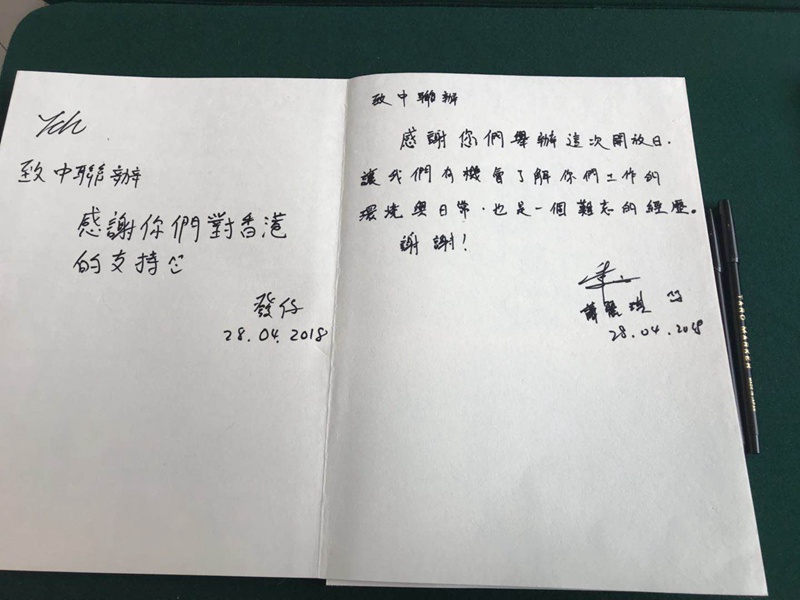 致中聯辦
感謝你們對香港
的支持
發仔
28.04.2018
致中聯辦
感謝你們舉辦這次開放日.
讓我們有機會了解你們工作的
環境與日常,也是一個難忘的經歷。
謝謝!
28.04.2018
MARKER